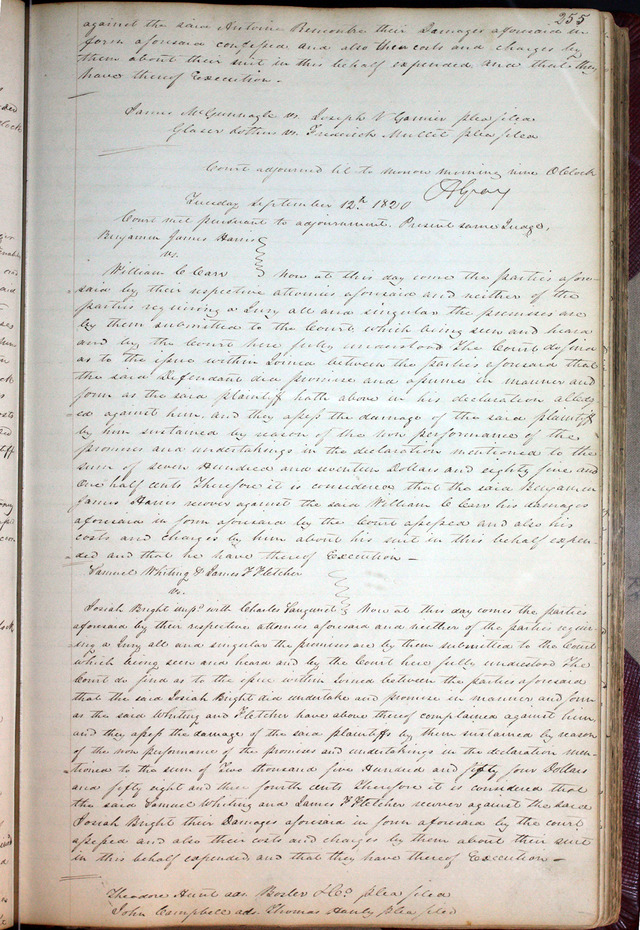 255
against the said Antoine their Damages aforesaid in
form aforesaid confessed and also their costs and charges by
them about their suit in this behalf expended and that they
have thereof Execution –
James McGunnagle vs. Joseph V Garnier plea filed
vs. Frederick Mullet plea filed
Court adjourned til to morrow morning nine O Clock
A Gray
Tuesday September 12th 1820
Court met pursuant to adjournment. Present same Judge,
Benjamin James Harris
vs.
William C Carr Now at this day come the parties afore-
said by their respective attornies aforesaid and neither of the
parties requiring a Jury all and singular the premises are
by them submitted to the Court which being seen and heard
and by the Court here fully understood The Court do find
as to the issue within Joined between the parties aforesaid that
the said Defendant did promise and assume in manner and
form as the said plaintiff hath above in his declaration alledg-
ed against him. and they assess the damage of the said plaintiff
by him sustained by reason of the non performance of the
promises and undertakings in the declaration mentioned to the
sum of seven Hundred and seventeen Dollars and eighty five and
One half cents Therefore it is considered that the said Benjamin
James Harris recover against the said William C Carr his damages
aforesaid in form aforesaid by the Court assessed and also his
costs and charges by him about his suit in this behalf expen-
ded and that he have thereof Execution –
Samuel Whiting & James F Fletcher
vs.
Josiah Bright imp.d with Charles Now at this day comes the parties
aforesaid by their respective attornies aforesaid and neither of the parties requir-
ing a Jury all and singular the premises are by them submitted to the Court
which being seen and heard and by the Court here fully understood The
Court do find as to the issue within Joined between the parties aforesaid
that the said Josiah Bright did undertake and promise in manner and form
as the said Whiting and Fletcher have above thereof complained against him,
and they assess the damage of the said plaintiffs by them sustained by reason
of the non performance of the promises and undertakings in the declaration men-
tioned to the sum of Two thousand five Hundred and fifty four Dollars
and fifty eight and three fourth cents Therefore it is considered that
the said Samuel Whiting and James F Fletcher recover against the said
Josiah Bright their Damages aforesaid in form aforesaid by the court
assessed and also their costs and charges by them about their suit
in this behalf expended and that they have thereof Execution –
Theodore Hunt ads. Bosler & Co. plea filed
John Campbell ads. Thomas Hanly plea filed